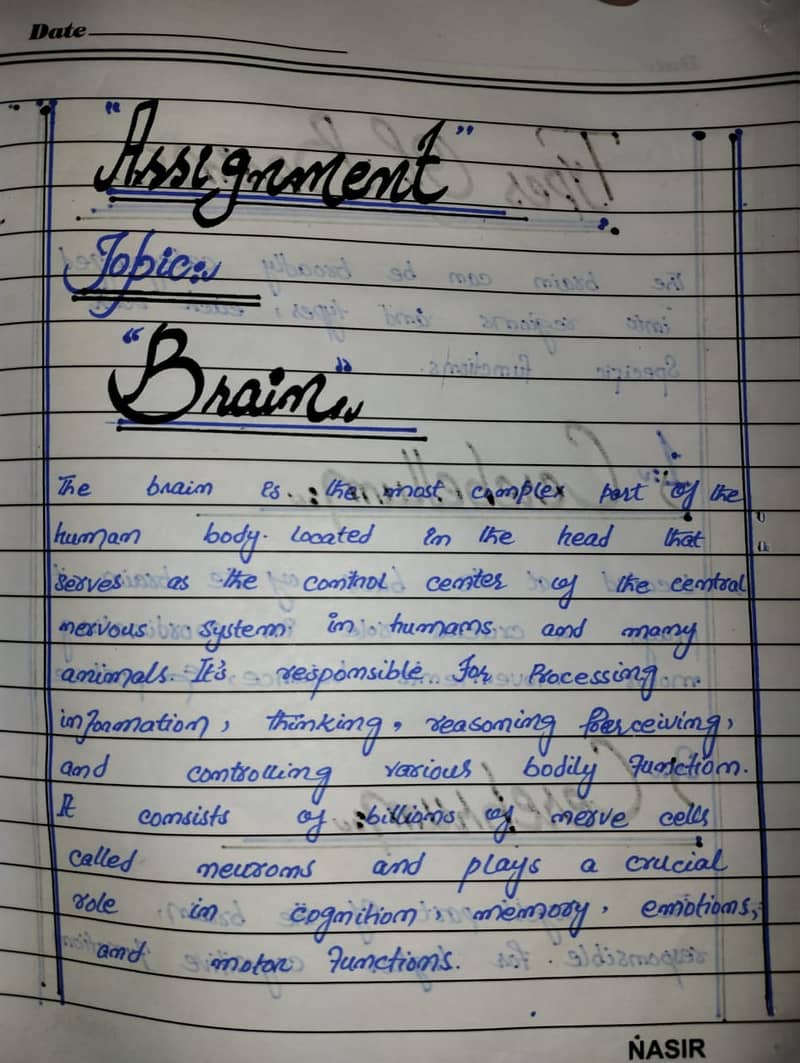 Date
"Assignment"
Topic:
"Brain"
The brain is the most complex part of the
human body. located in the head that
serves as the control center of the central
nervous system in humans and many
animals. It's responsible For Processing
information, thinking, reasoning Perceiving,
and controlling various bodily Function.
It consists of billions of nerve cells
called neurons and plays a crucial
role in cognition, memory, emotions,
and motor Functions.
NASIR